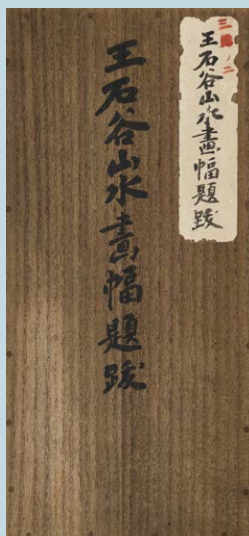 三ノ二
王石谷山水畫幅題跋
王石谷山水畫幅題跋